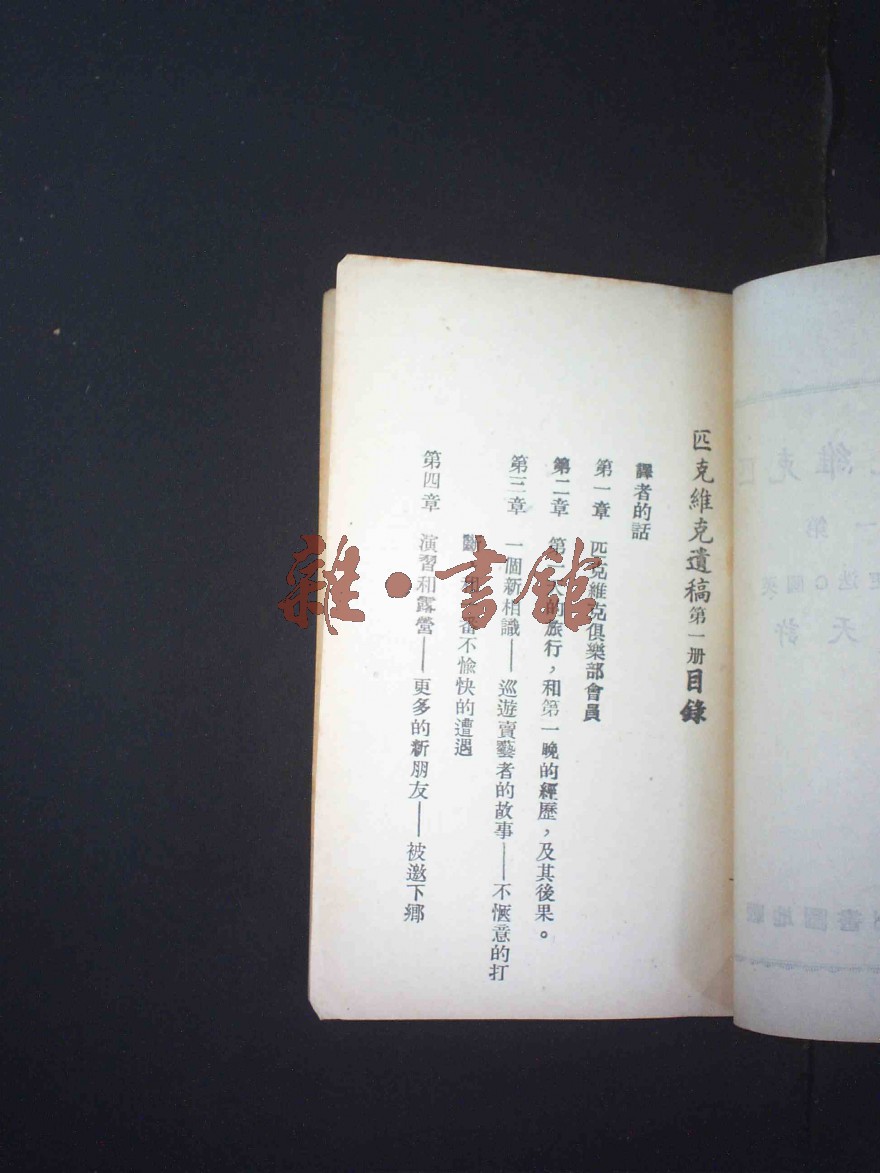 匹克維克遺稿第一册目錄
譯者的話
第一章 匹克維克俱樂部會員
第二章 第一天的旅行,和第一晚的經歷,及其後果。
第三章 一個新相識——巡遊賣藝者的故事——不愜意的打
斷,和一番不愉快的遭遇
第四章 演習和露營——更多的新朋友——被邀下鄉
雜·書館